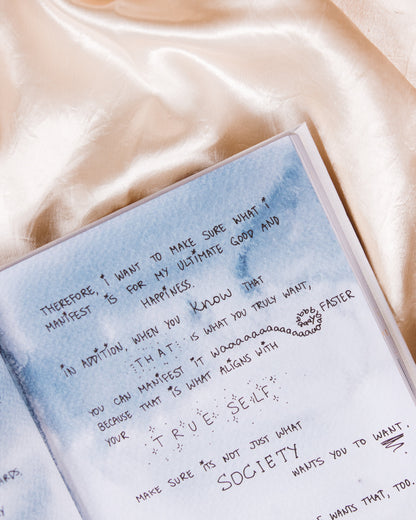 THEREFORE, i WANT TO MAKE SURE WHAT i
MANiFEST iS FOR MY ULTIMATE GOOD AND
HAPPINESS.
iN ADDiTiON, WHEN YOU know THAT
THAT iS WHAT YOU TRULY WANT,
YOU CAN MANiFEST iT FASTER
BECAUSE THAT iS WHAT ALiGNS WiTH
YOUR TRUE SELF
MAKE SURE iTS NOT JUST WHAT
SOCiETY WANTS YOU TO WANT.
WANTS THAT, TOO.